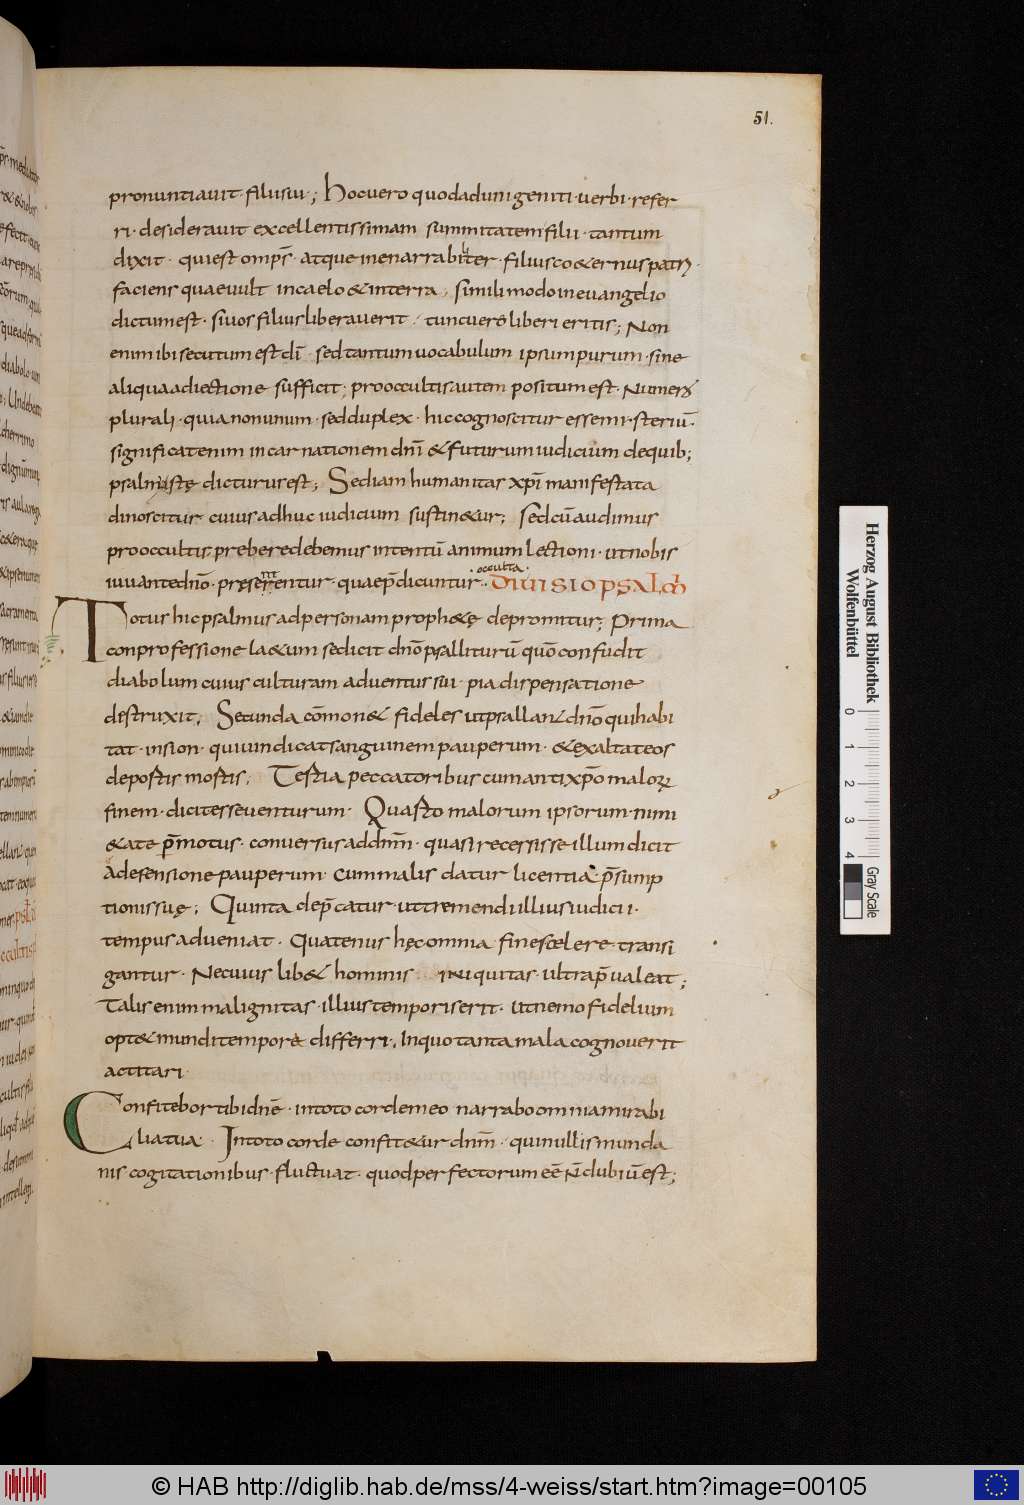 51.
pronuntiavit· filii sui; Hoc vero quod ad unigeniti· verbi· refer
ri· desideravit excellentissimam summitatem filii· tantum
dixit· qui est omps̄· atque inenarrabiliter· filius co&ernus patris·
faciens quae vult in caelo & in terra, simili modo in evangelio
dictum est· si vos filius liberaverit· tunc vere liberi eritis; Non
enim ibi secutum est dī· sed tantum vocabulum ipsum purum· sine
aliqua adiectione sufficit; pro occultis autem positum est· Numero
plurali· quia non unum· sed duplex· hic cognoscitur esse misteriū·
significat enim incarnationem dnī & futurum iudicium de quib;
psalmistę dicturus est; Sed iam humanitas xpī manifestata
dinoscitur cuius adhuc iudicium sustin&ur; Sed cū audimus
pro occultis prebere debemus intentū animum lectioni· ut nobis
iuvante dnō· preserentur· quae p̄dicuntur· occulta· DIVISIO PSALMI
Totus hic psalmus ad personam proph&ę depromitur; Prima
conprofessione la&um se dicit dnō psalliturū quō confudit
diabolum cuius culturam adventus sui· pia dispensatione
destruxit, Secunda cōmon& fideles ut psallant dnō qui habi
tat· in sion· qui vindicat sanguinem pauperum· & exaltat eos
de postis mostis; Testia peccatoribus cum antixpō malorum
finem· dicit esse venturum· Quarto malorum ipsorum· nimi
&ate p̄motus· conversus ad dnm̄· quasi recersisse illum dicit
a defensione pauperum· cum malis datur licentia· p̄sump
tionis suę; Quinta dep̄catur· ut tremendi illius iudicii·
tempus adveniat· Quatenus hęc omnia fine scelere· transi
gantur· Nec uius lib& hominis iniquitas· ultra p̄valeat;
Talis enim malignitas· illius temporis erit· ut nemo fidelium
opt& mundi tempora differri, In quo tanta mala cognoverit
actitari·
Confitebor tibi dnē· in toto corde meo narrabo omnia mirabi
lia tua· In toto corde confit&ur dnm̄· qui nullis munda
nis cogitationibus· fluctuat· quod perfectorum eē n̄ dubiū est;
Herzog August Bibliothek
Wolfenbüttel
0 1 2 3 4
Gray Scale
© HAB http://diglib.hab.de/mss/4-weiss/start.htm?image=00105